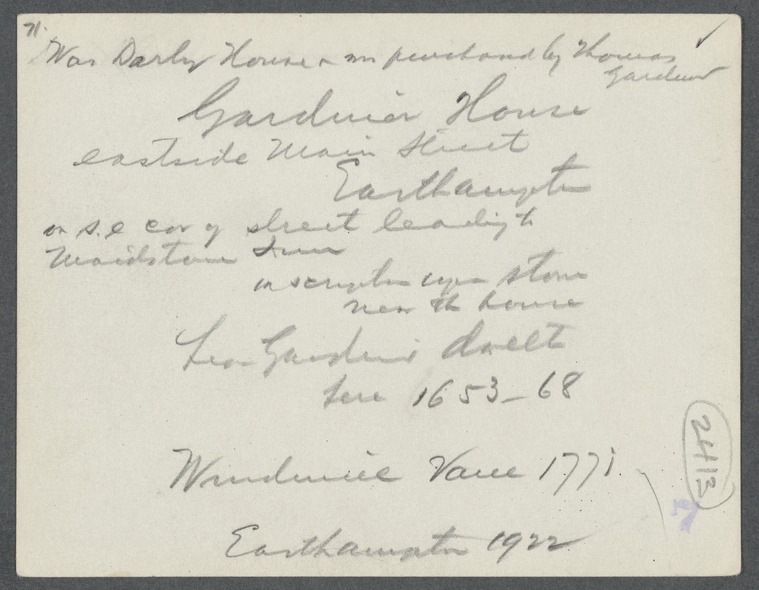 71.
Was Darby House & purchased by Thomas
Gardiner
Gardiner House
eastside Main Street
Easthampton
on s.e cor of street leading to
Maidstone Inn
inscription upon stone
near the house
Lion Gardiner dwelt
here 1653–68
Windmill Vane 1771.
Easthampton 1922
2413
7